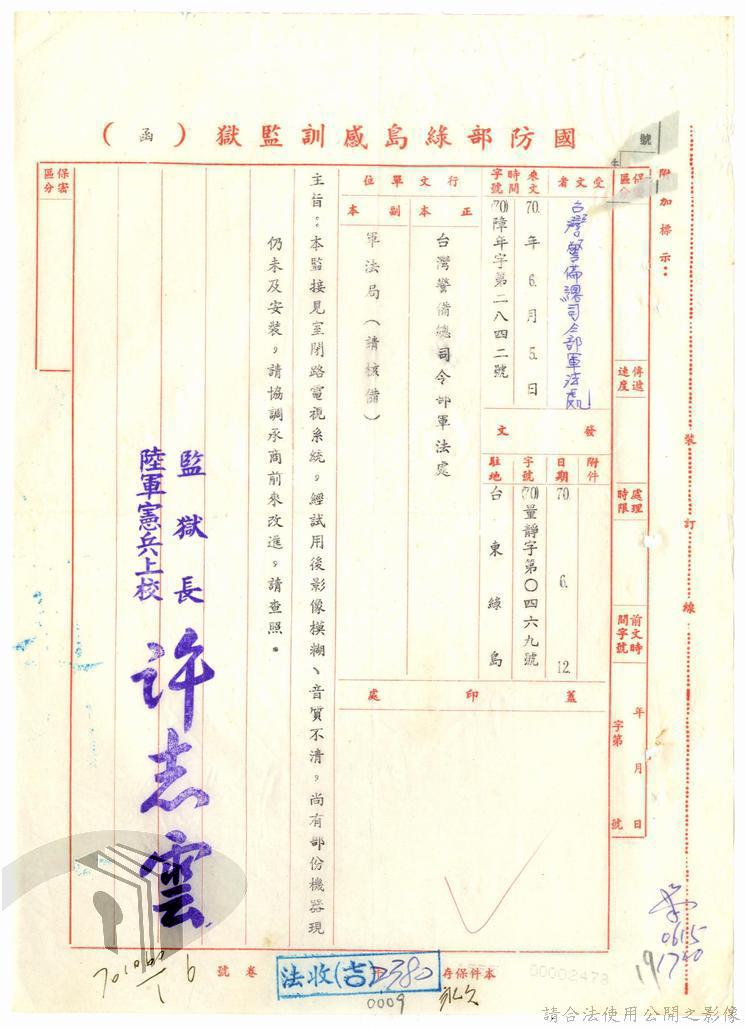 國防部綠島感訓監獄（函）
號
附加標示：
裝訂線
保密區分
傳遞速度
處理時限
前文時間字號
年月日
字第號
受文者
台灣警備總司令部軍法處
來文
時間
70.年6.月5.日
字號
(70)障年字第二八四二號
發文
附件
日期
70. 6. 12.
字號
(70)量靜字第〇四六九號
駐地
台東綠島
行文單位
正本
台灣警備總司令部軍法處
副本
軍法局（請核備）
蓋印處
主旨：本監接見室閉路電視系統，經試用後影像模糊、音質不清，尚有部份機器現
仍未及安裝，請協調承商前來改進，請查照。
監獄長
陸軍憲兵上校
許志雲
保密區分
0615
1740
19
本件保存
永久
00002478
法收(吉)2380
0009
卷號
請合法使用公開之影像